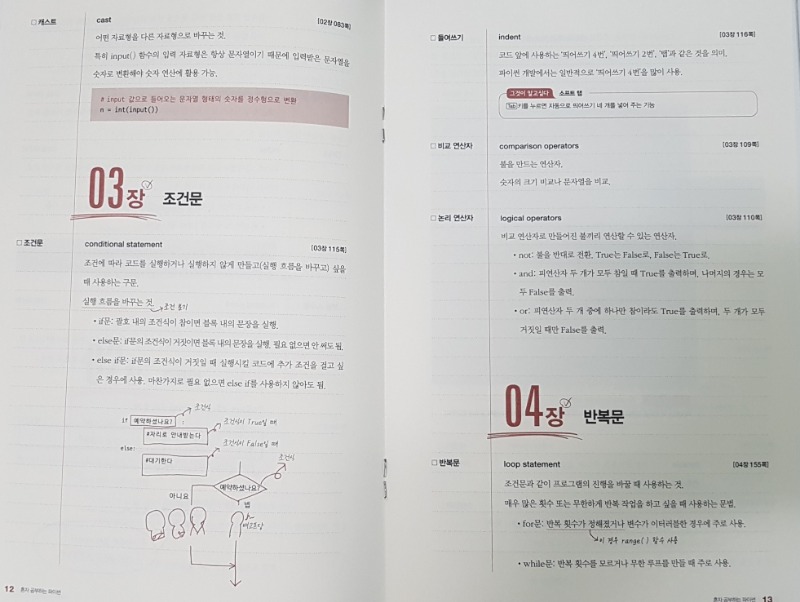 □ 캐스트
cast
[02장 083쪽]
어떤 자료형을 다른 자료형으로 바꾸는 것.
특히 input() 함수의 입력 자료형은 항상 문자열이기 때문에 입력받은 문자열을
숫자로 변환해야 숫자 연산에 활용 가능.
# input 값으로 들어오는 문자열 형태의 숫자를 정수형으로 변환
n = int(input())
03장 조건문
□ 조건문
conditional statement
[03장 115쪽]
조건에 따라 코드를 실행하거나 실행하지 않게 만들고(실행 흐름을 바꾸고) 싶을
때 사용하는 구문.
실행 흐름을 바꾸는 것.
조건 분기
• if문: 괄호 내의 조건식이 참이면 블록 내의 문장을 실행.
• else문: if문의 조건식이 거짓이면 블록 내의 문장을 실행. 필요 없으면 안 써도 됨.
• else if문: if문의 조건식이 거짓일 때 실행시킬 코드에 추가 조건을 걸고 싶
은 경우에 사용. 마찬가지로 필요 없으면 else if를 사용하지 않아도 됨.
조건식
if 예약하셨나요? :
조건식이 True일 때
#자리로 안내받는다
else:
조건식이 False일 때
#대기한다
조건식
예약하셨나요?
아니요
넵
12 혼자 공부하는 파이썬
□ 들여쓰기
indent
[03장 116쪽]
코드 앞에 사용하는 '띄어쓰기 4번', '띄어쓰기 2번', '탭'과 같은 것을 의미.
파이썬 개발에서는 일반적으로 '띄어쓰기 4번'을 많이 사용.
그것이 알고싶다 소프트 탭
Tab 키를 누르면 자동으로 띄어쓰기 네 개를 넣어 주는 기능
□ 비교 연산자
comparison operators
[03장 109쪽]
불을 만드는 연산자.
숫자의 크기 비교나 문자열을 비교.
□ 논리 연산자
logical operators
[03장 110쪽]
비교 연산자로 만들어진 불끼리 연산할 수 있는 연산자.
• not: 불을 반대로 전환. True는 False로, False는 True로.
• and: 피연산자 두 개가 모두 참일 때 True를 출력하며, 나머지의 경우는 모
두 False를 출력.
• or: 피연산자 두 개 중에 하나만 참이라도 True를 출력하며, 두 개가 모두
거짓일 때만 False를 출력.
04장 반복문
□ 반복문
loop statement
[04장 155쪽]
조건문과 같이 프로그램의 진행을 바꿀 때 사용하는 것.
매우 많은 횟수 또는 무한하게 반복 작업을 하고 싶을 때 사용하는 문법.
• for문: 반복 횟수가 정해졌거나 변수가 이터러블한 경우에 주로 사용.
이 경우 range() 함수 사용
• while문: 반복 횟수를 모르거나 무한 루프를 만들 때 주로 사용.
혼자 공부하는 파이썬 13